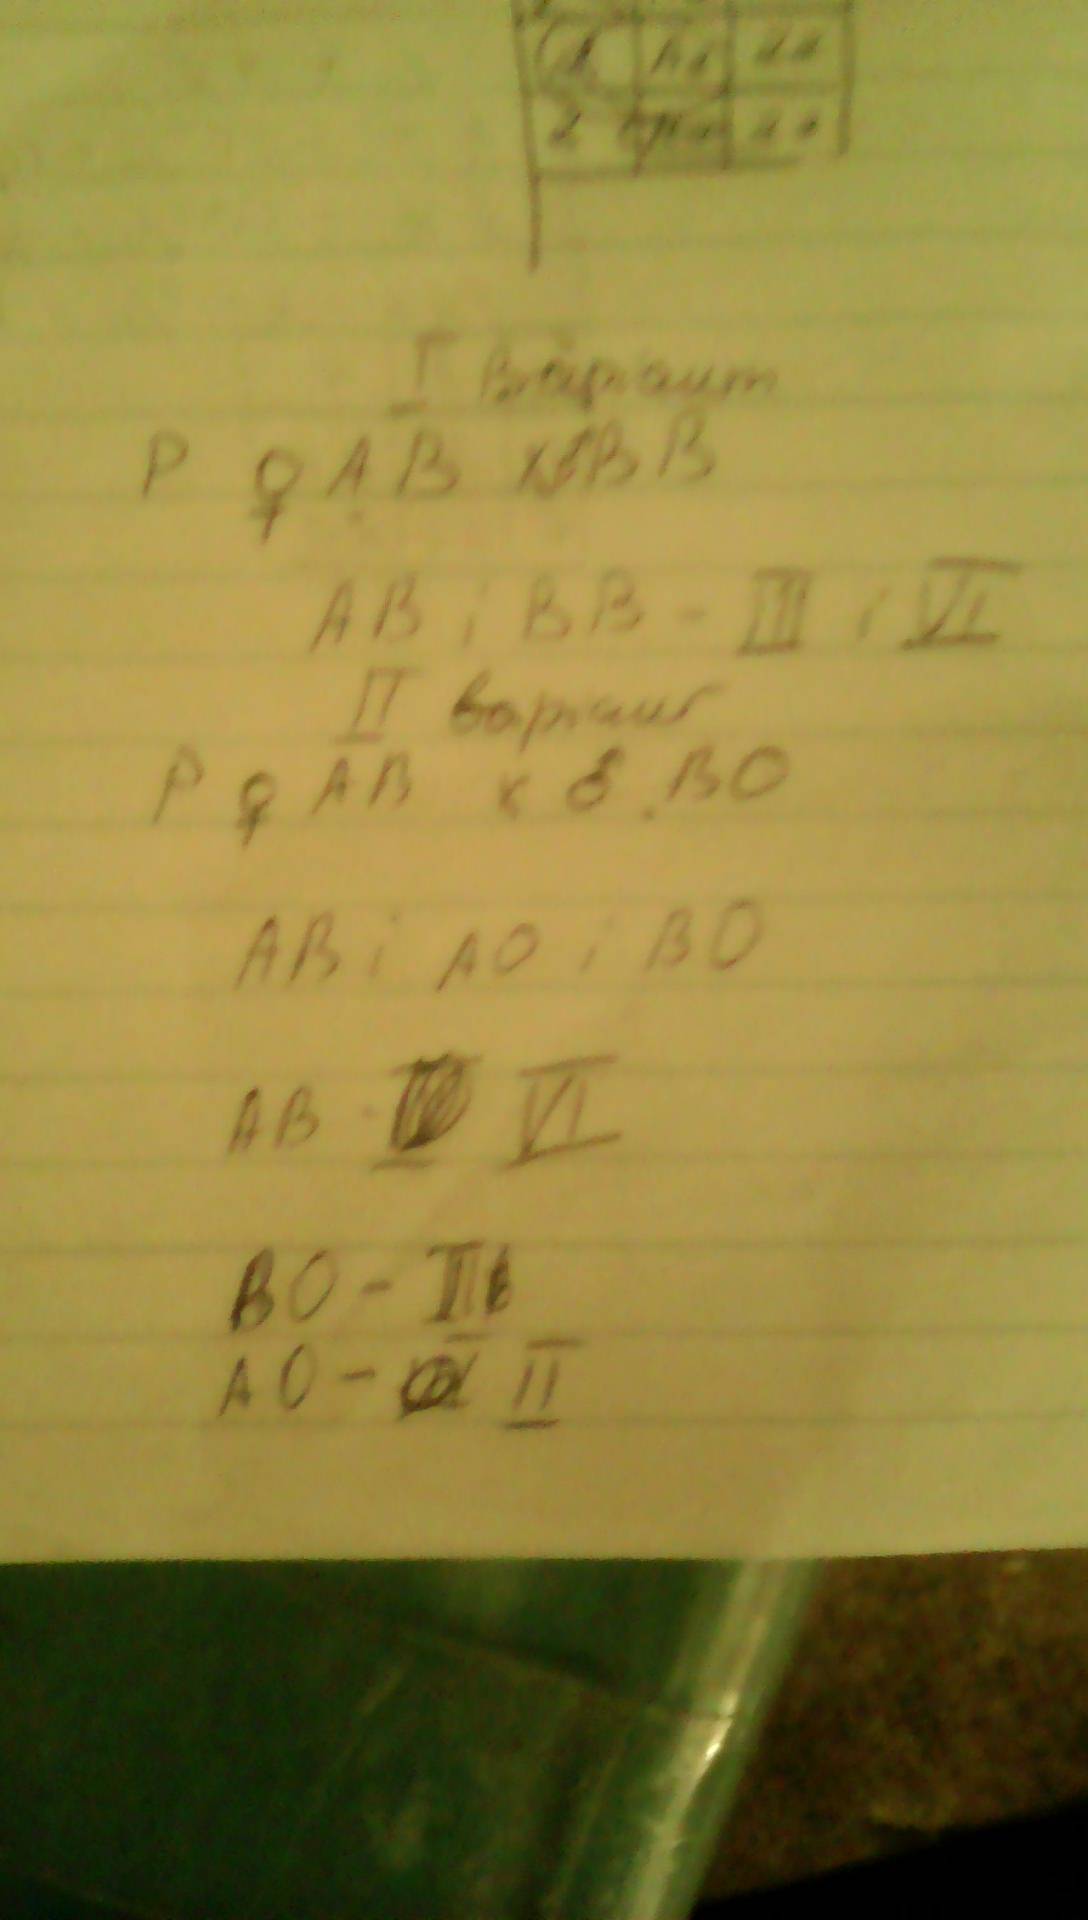 I Варіант
P ♀ AB x ♂ BB
AB i BB - III i VI
II варіант
P ♀ AB x ♂ BO
AB i AO i BO
AB - VI
BO - III
AO - II